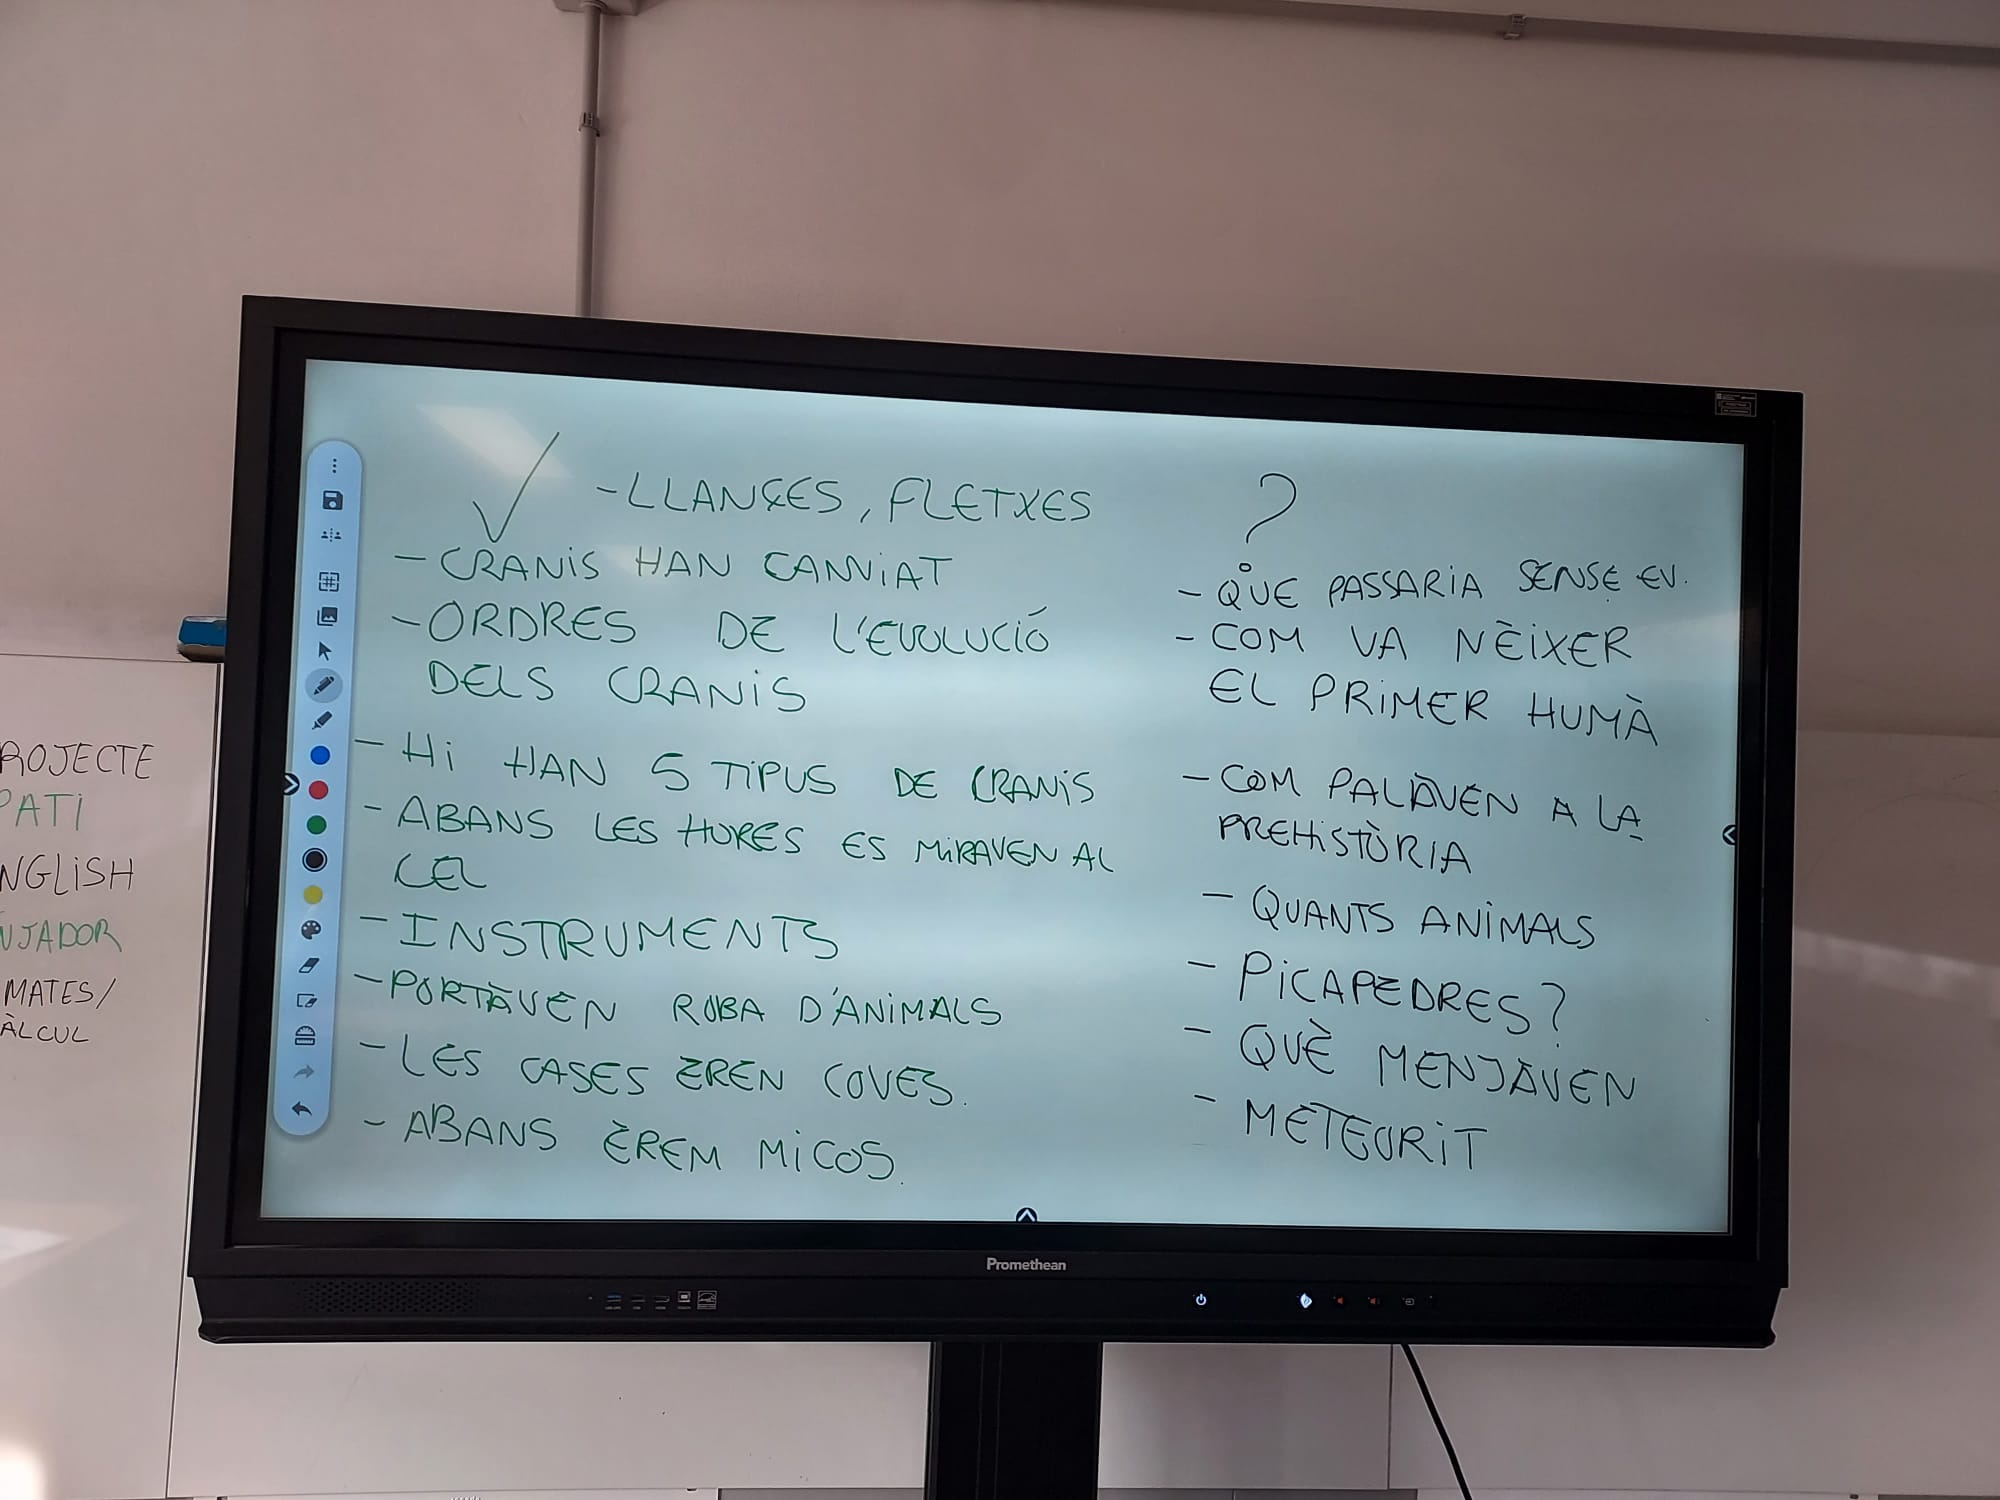 - LLANÇES, FLETXES
- CRANIS HAN CANVIAT
- ORDRES DE L'EVOLUCIÓ
DELS CRANIS
- HI HAN 5 TIPUS DE CRANIS
- ABANS LES HORES ES MIRAVEN AL
CEL
- INSTRUMENTS
- PORTAVEN ROBA D'ANIMALS
- LES CASES EREN COVES.
- ABANS ÈREM MICOS.
?
- QUE PASSARIA SENSE EV.
- COM VA NÈIXER
EL PRIMER HUMÀ
- COM PALAVEN A LA
PREHISTÒRIA
- QUANTS ANIMALS
- PICAPEDRES?
- QUÈ MENJAVEN
- METEORIT
ROJECTE
PATI
NGLISH
NJADOR
MATES/
ÀLCUL
Promethean